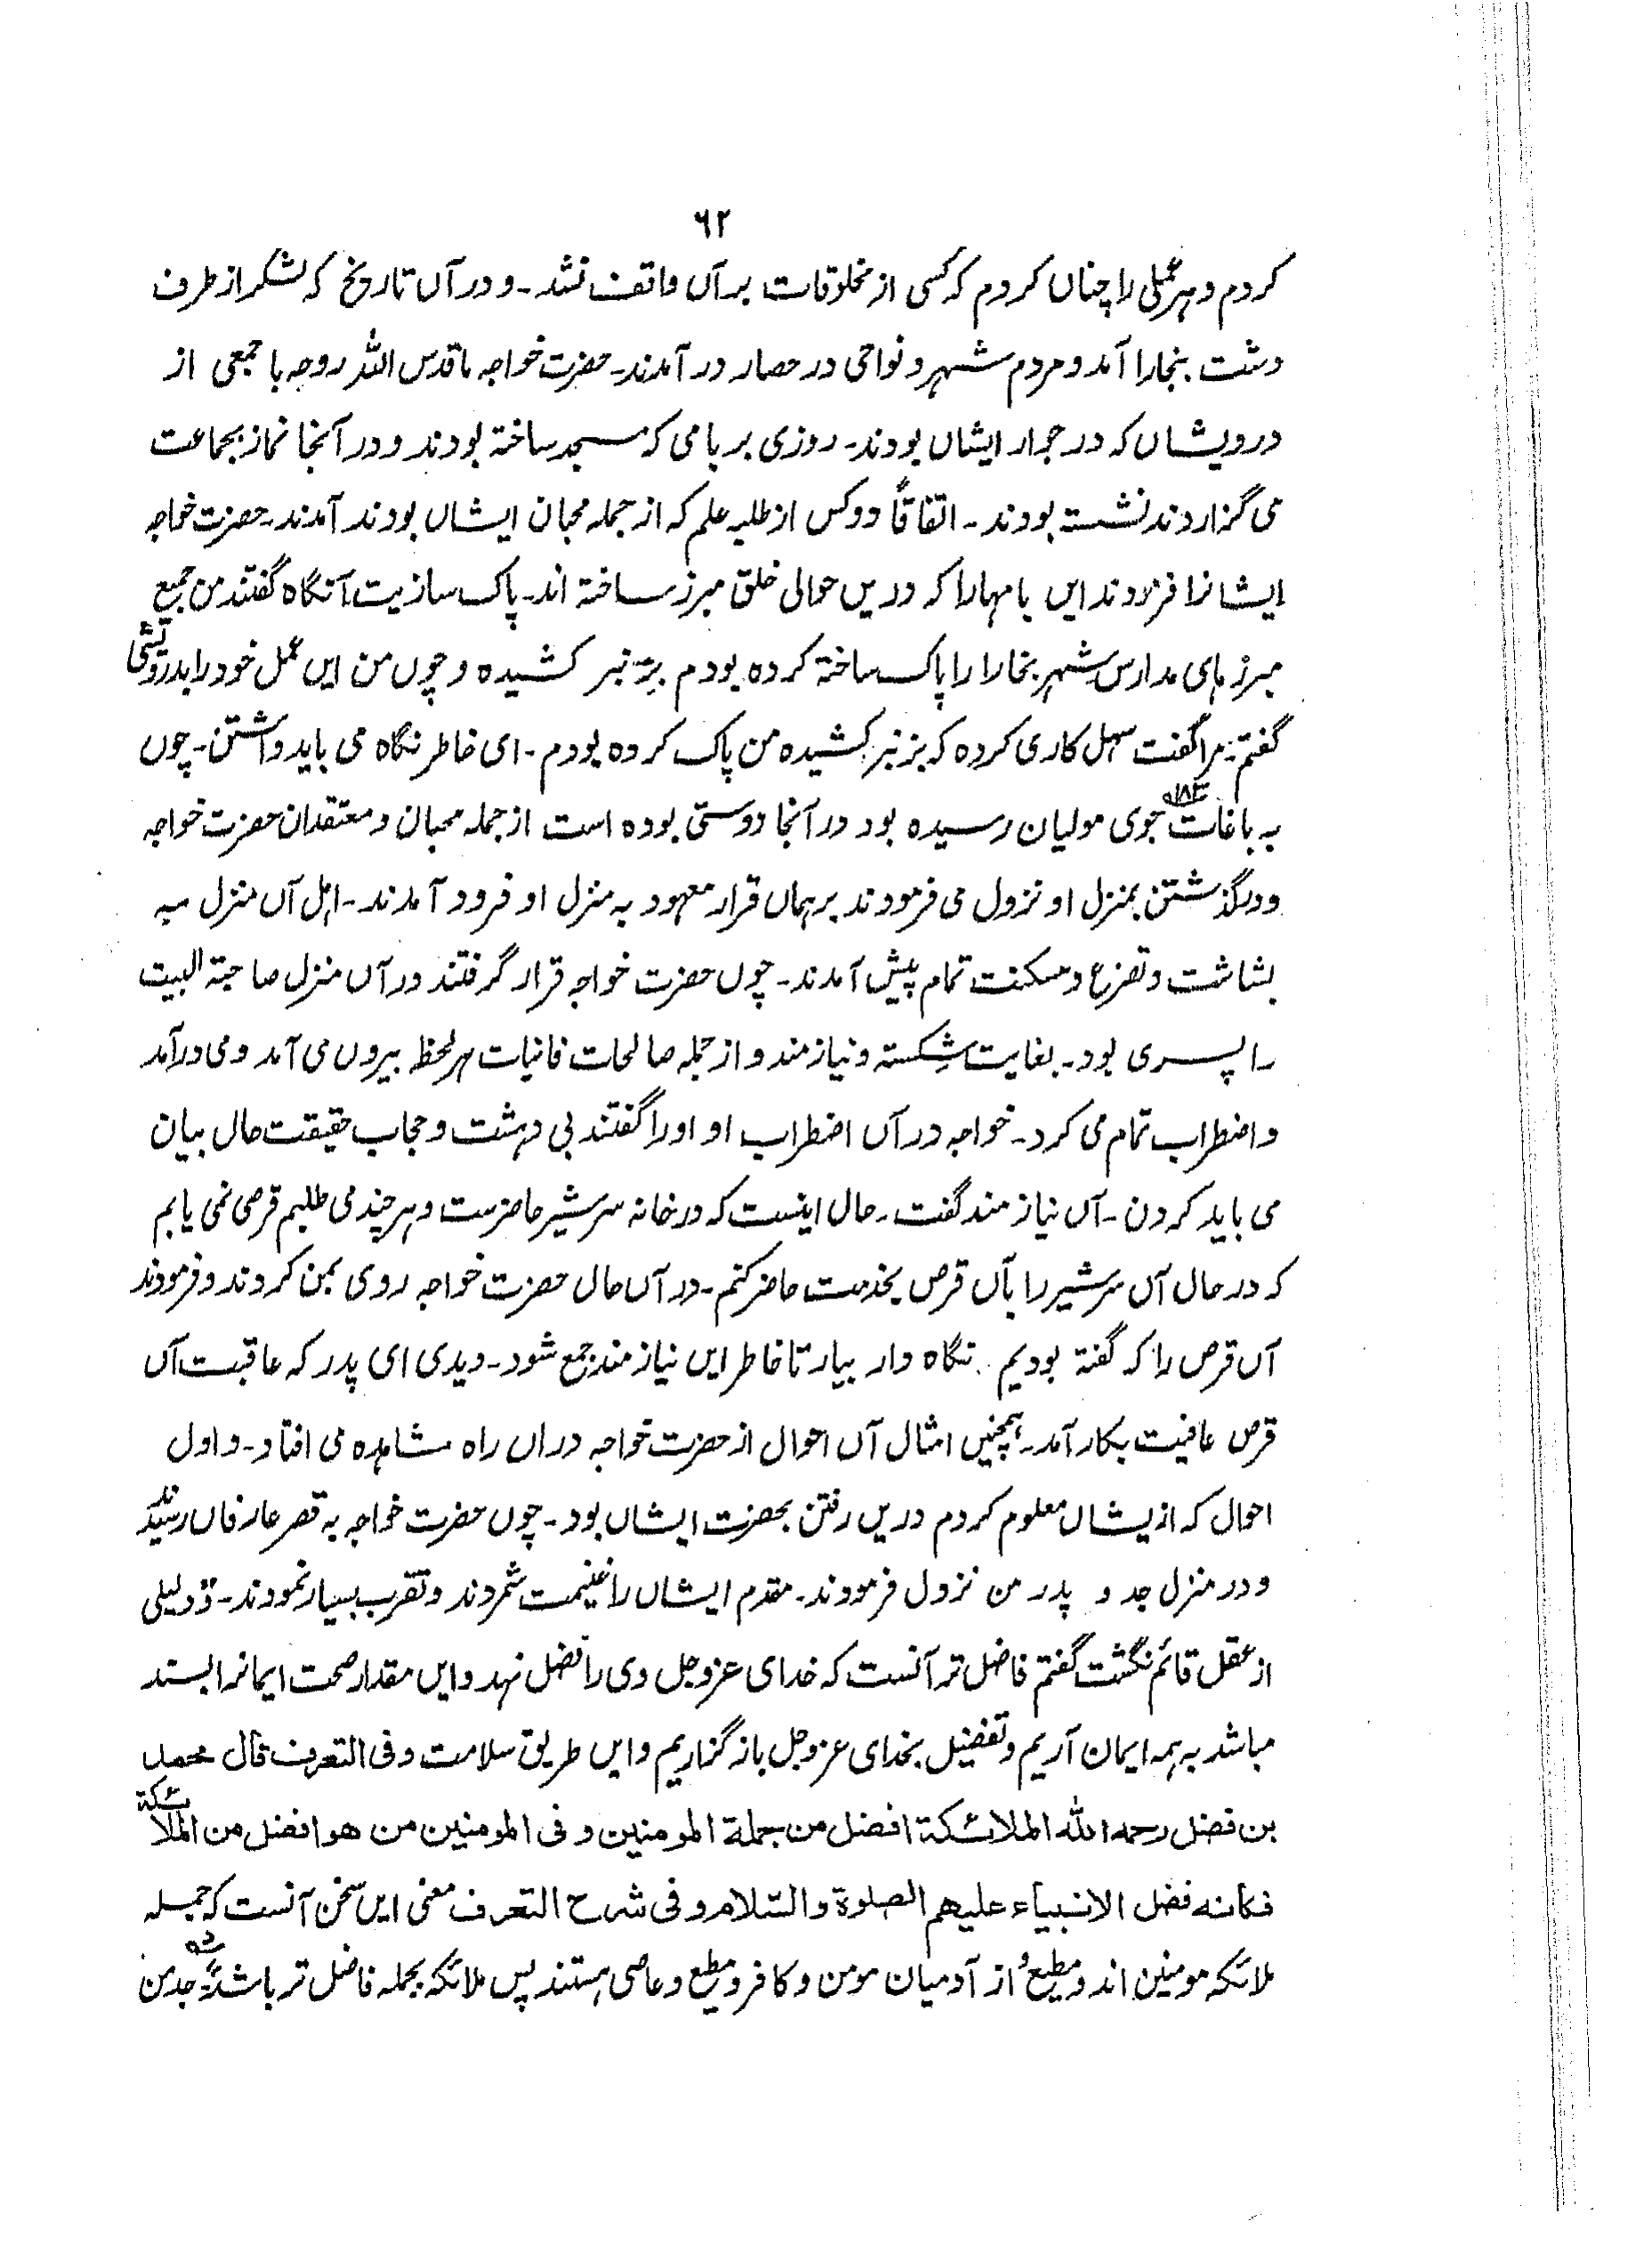 ٦٢
کردم و ہر عملی را چناں کردم کہ کسی از مخلوقات بر آں واقف نشد ۔ و در آں تاریخ کہ لشکر از طرف
دشت بخارا آمد و مردم شہر و نواحی در حصار در آمدند ۔ حضرت خواجہ ما قدس اللہ روحہ با جمعی از
درویشاں کہ در جوار ایشاں بودند ۔ روزی بر بامی کہ مسجد ساختہ بودند و در آنجا نماز بجماعت
می گزاردند نشستہ بودند ۔ اتفاقاً دو کس از طلبہ علم کہ از جملہ محبان ایشاں بودند آمدند ۔ حضرت خواجہ
ایشانرا فرمودند ایں بامہارا کہ دریں حوالی خلق مبرز ساختہ اند ۔ پاک سازیت آنگاہ گفتند من جمیع
مبرز ہای مدارس شہر بخارا را پاک ساختہ کردہ بودم بزنبر کشیدہ و چوں من ایں عمل خود را بدرویشی
گفتم ۔ مرا گفت سہل کاری کردہ کہ بزنبر کشیدہ من پاک کردہ بودم ۔ ای خاطر نگاہ می باید داشتن ۔ چوں
بہ باغات جوی مولیان رسیدہ بود در آنجا دوستی بودہ است از جملہ محبان و معتقدان حضرت خواجہ
و در گذشتن بمنزل او نزول می فرمودند بر ہماں قرار معہود بہ منزل او فرود آمدند ۔ اہل آں منزل بہ
بشاشت و تضرع و مسکنت تمام پیش آمدند ۔ چوں حضرت خواجہ قرار گرفتند در آں منزل صاحبۃ البیت
را پسری بود ۔ بغایت شکستہ و نیازمند و از جملہ صالحات قانیات ہر لحظہ بیروں می آمد و می درآمد
و اضطراب تمام می کرد ۔ خواجہ در آں اضطراب او اورا گفتند بی دہشت و حجاب حقیقت حال بیان
می باید کردن ۔ آں نیازمند گفت ۔ حال اینست کہ در خانہ سرشیر حاضرست و ہر چند می طلبم قرصی نمی یابم
کہ در حال آں سرشیر را بآں قرص بخدمت حاضر کنم ۔ در آں حال حضرت خواجہ روی بمن کردند و فرمودند
آں قرص را کہ گفتہ بودیم نگاہ دار بیار تا خاطر ایں نیازمند جمع شود ۔ دیدی ای پدر کہ عاقبت آں
قرص عافیت بکار آمد ۔ ہمچنیں امثال آں احوال از حضرت خواجہ دراں راہ مشاہدہ می افتاد ۔ و اول
احوال کہ ازیشاں معلوم کردم دریں رفتن بحضرت ایشاں بود ۔ چوں حضرت خواجہ بہ قصر عارفاں رسیدند
و در منزل جد و پدر من نزول فرمودند ۔ مقدم ایشاں را غنیمت شمردند و تقرب بسیار نمودند ۔ دلیلی
از عقل قائم نگشت گفتم فاضل تر آنست کہ خدای عز و جل وی را فضل نہد و ایں مقدار صحت ایمانرا بسند
مباشد بہ ہمہ ایمان آریم و تفضیل بخدای عز و جل باز گزاریم و ایں طریق سلامت و فی التعرف قال محمد
بن فضل رحمہ اللہ الملائکۃ افضل من جملۃ المومنین و فی المومنین من هو افضل من الملائکۃ
فکانہ فضل الانبیاء علیهم الصلوۃ والسّلام و فی شرح التعرف معنی ایں سخن آنست کہ جملہ
ملائکہ مومنین اند و مطیع و از آدمیان مومن و کافر و مطیع و عاصی ہستند پس ملائکہ بجملہ فاضل تر باشد جدمن